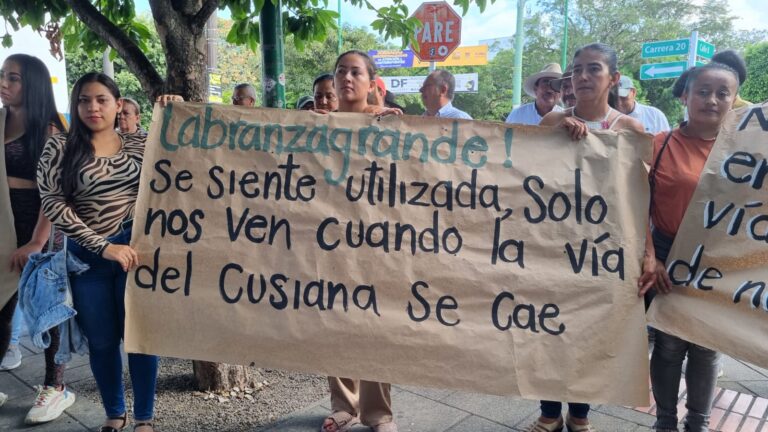 PARE
Carrera 20
DF
Labranzagrande!
Se siente utilizada, Solo
nos ven cuando la vía
del Cusiana Se cae
en
vía
de n